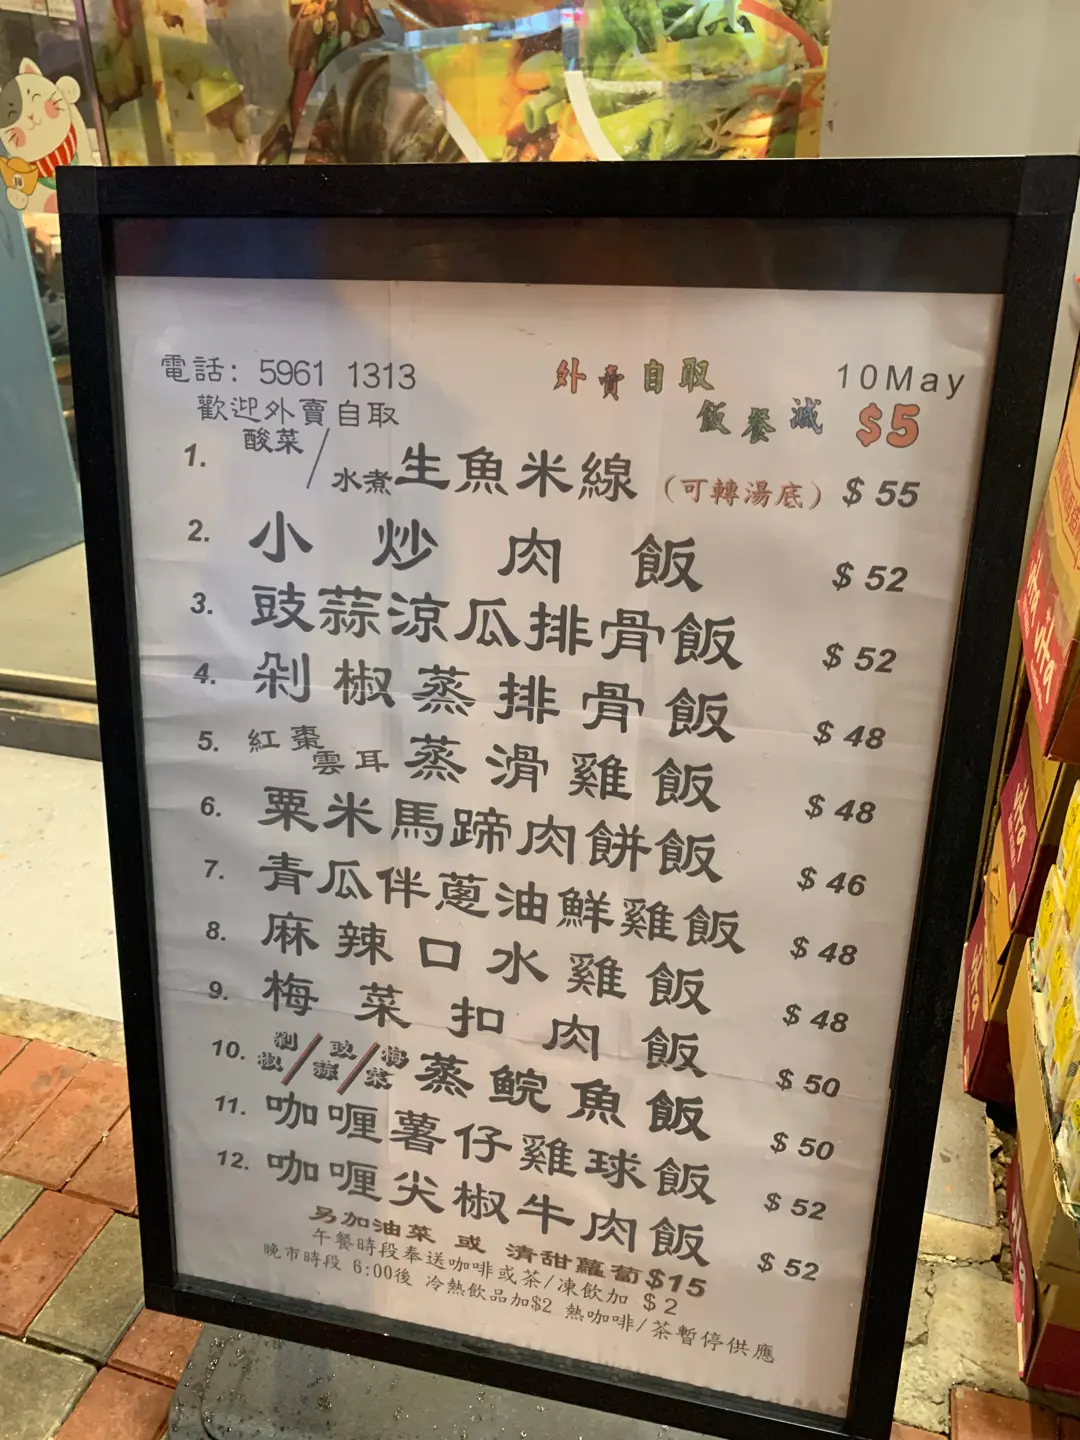 電話: 5961 1313
歡迎外賣自取
外賣自取
飯餐減 $5
10May
1. 酸菜/水煮生魚米線 (可轉湯底) $ 55
2. 小炒肉飯 $ 52
3. 豉蒜涼瓜排骨飯 $ 52
4. 剁椒蒸排骨飯 $ 48
5. 紅棗雲耳蒸滑雞飯 $ 48
6. 粟米馬蹄肉餅飯 $ 46
7. 青瓜伴蔥油鮮雞飯 $ 48
8. 麻辣口水雞飯 $ 48
9. 梅菜扣肉飯 $ 50
10. 剁椒/豉蒜/梅菜蒸鯇魚飯 $ 50
11. 咖喱薯仔雞球飯 $ 52
12. 咖喱尖椒牛肉飯 $ 52
另加油菜 或 清甜蘿蔔$15
午餐時段奉送咖啡或茶/凍飲加 $2
晚市時段 6:00後 冷熱飲品加$2 熱咖啡/茶暫停供應
vita
vita
vita